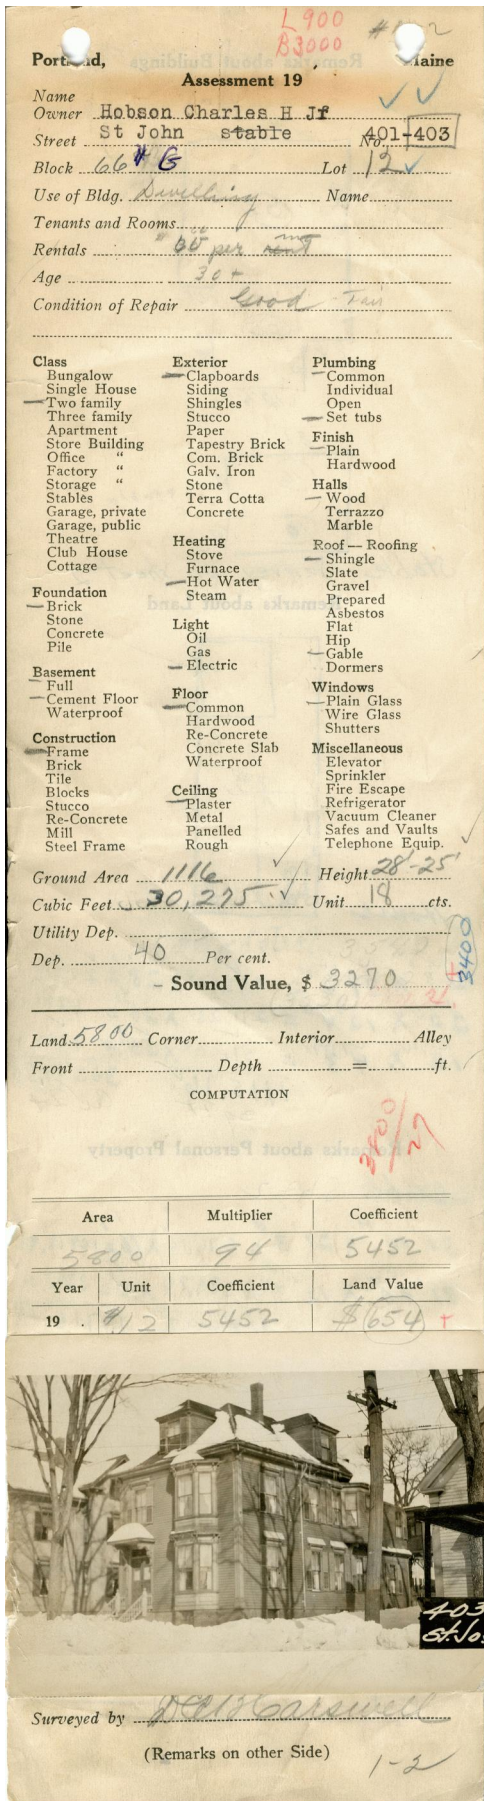 L 900
B 3000
Portland, Maine
Assessment 19
Name
Owner Hobson Charles H Jr
Street St John stable No. 401-403
Block 66 # G Lot 12
Use of Bldg. Dwelling Name
Tenants and Rooms
Rentals 60 per
Age 30+
Condition of Repair Good Fair
Class
Bungalow
Single House
Two family
Three family
Apartment
Store Building
Office "
Factory "
Storage "
Stables
Garage, private
Garage, public
Theatre
Club House
Cottage
Foundation
Brick
Stone
Concrete
Pile
Basement
Full
Cement Floor
Waterproof
Construction
Frame
Brick
Tile
Blocks
Stucco
Re-Concrete
Mill
Steel Frame
Exterior
Clapboards
Siding
Shingles
Stucco
Paper
Tapestry Brick
Com. Brick
Galv. Iron
Stone
Terra Cotta
Concrete
Heating
Stove
Furnace
Hot Water
Steam
Light
Oil
Gas
Electric
Floor
Common
Hardwood
Re-Concrete
Concrete Slab
Waterproof
Ceiling
Plaster
Metal
Panelled
Rough
Plumbing
Common
Individual
Open
Set tubs
Finish
Plain
Hardwood
Halls
Wood
Terrazzo
Marble
Roof — Roofing
Shingle
Slate
Gravel
Prepared
Asbestos
Flat
Hip
Gable
Dormers
Windows
Plain Glass
Wire Glass
Shutters
Miscellaneous
Elevator
Sprinkler
Fire Escape
Refrigerator
Vacuum Cleaner
Safes and Vaults
Telephone Equip.
Ground Area 1116 Height 28-25'
Cubic Feet 30,275 Unit 18 cts.
Utility Dep.
Dep. 40 Per cent.
3400
Sound Value, $ 3270
Land 5800 Corner Interior Alley
Front Depth = ft.
COMPUTATION
3800/27
Area Multiplier Coefficient
5800 94 5452
Year Unit Coefficient Land Value
19 . #.12 5452 $654 +
403
St. Jo
Surveyed by
(Remarks on other Side)
1-2